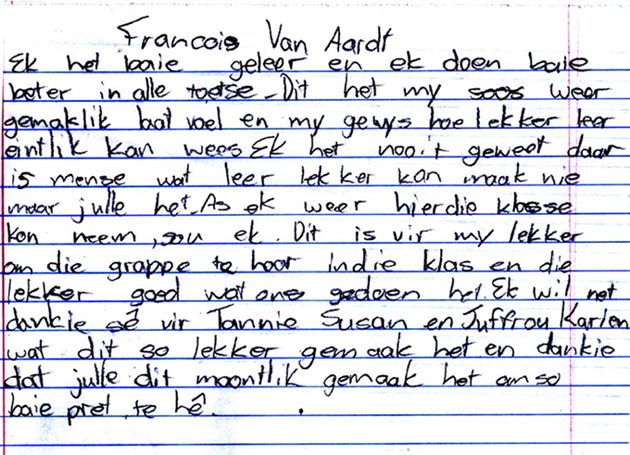 Francois Van Aardt
Ek het baie geleer en ek doen baie
beter in alle toetse. Dit het my soos weer
gemaklik laat voel en my gewys hoe lekker leer
eintlik kan wees Ek het nooit geweet daar
is mense wat leer lekker kan maak nie
maar julle het. As ek weer hierdie klasse
kon neem, sou ek. Dit is vir my lekker
om die grappe te hoor in die klas en die
lekker goed wat ons gedoen het. Ek wil net
dankie sê vir Tannie Susan en Juffrou Karlen
wat dit so lekker gemaak het en dankie
dat julle dit moontlik gemaak het om so
baie pret te hê.